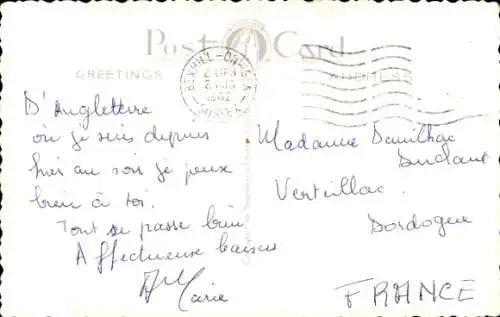 Post Card
GREETINGS
ADDRESS
BEXHILL-ON-SEA
1962
SUSSEX
D'Angleterre
où je suis depuis
hier au soir je pense
bien à toi.
Tout se passe bien
Affectueux baisers
Marie
Madame
Verteillac.
Dordogne
FRANCE